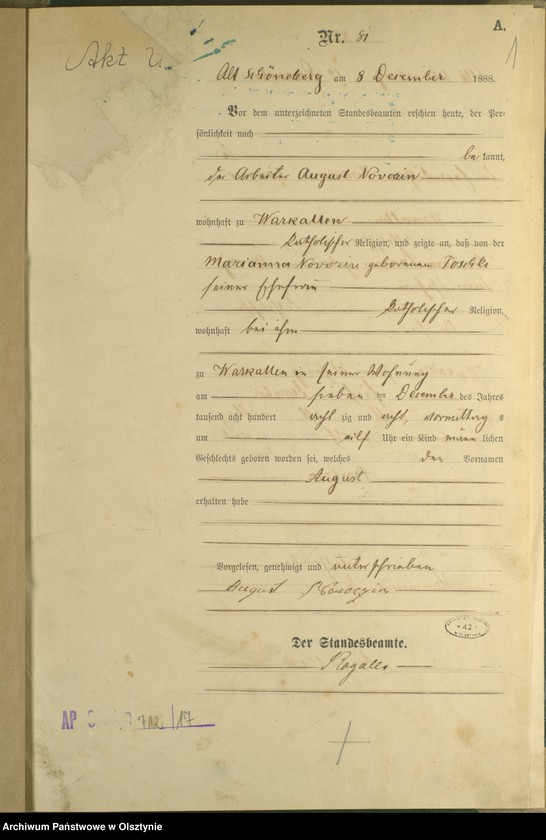 A.
Nr. 81
1
Akt U.
Alt Schöneberg am 8 December 1888.
Vor dem unterzeichneten Standesbeamten erschien heute, der Per-
sönlichkeit nach
be kannt,
der Arbeiter August Novozin
wohnhaft zu Warkallen
katholischer Religion, und zeigte an, daß von der
Marianna Novozin geborenen Toschki
seiner Ehefrau
katholischer Religion,
wohnhaft bei ihm
zu Warkallen in seiner Wohnung
am sieben ten December des Jahres
tausend acht hundert acht zig und acht, vormittag s
um eilf Uhr ein Kind männ lichen
Geschlechts geboren worden sei, welches den Vornamen
August
erhalten habe
Vorgelesen, genehmigt und unterschrieben
August
Der Standesbeamte.
Rogalla
42
AP 712/17
Archiwum Państwowe w Olsztynie